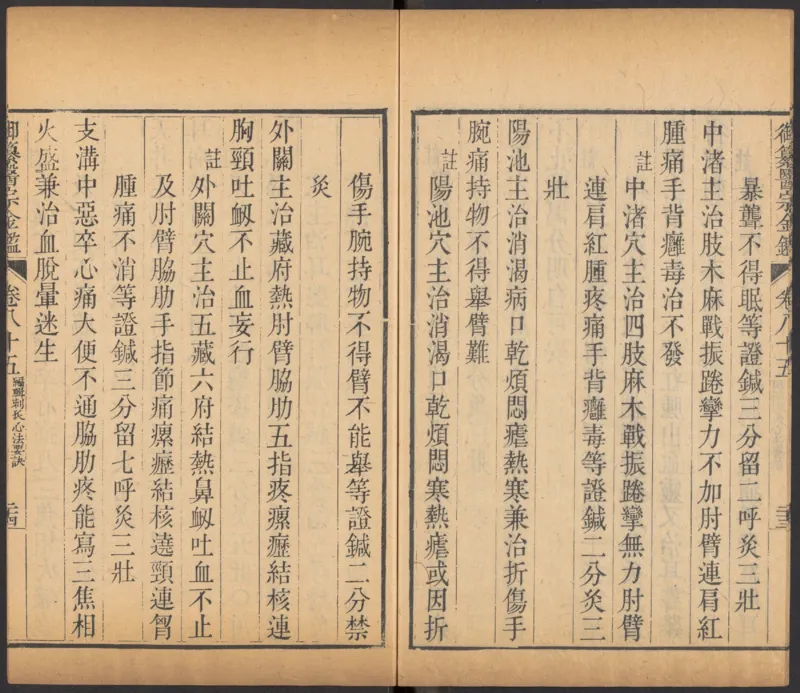 御纂醫宗金鑑 卷八十五 二十三
暴聾不得眠等證鍼三分留二呼灸三壯
中渚主治肢木麻戰振踡攣力不加肘臂連肩紅
腫痛手背癰毒治不發
註 中渚穴主治四肢麻木戰振踡攣無力肘臂
連肩紅腫疼痛手背癰毒等證鍼二分灸三
壯
陽池主治消渴病口乾煩悶瘧熱寒兼治折傷手
腕痛持物不得舉臂難
註 陽池穴主治消渴口乾煩悶寒熱瘧或因折
傷手腕持物不得臂不能舉等證鍼二分禁
灸
外關主治藏府熱肘臂脇肋五指疼瘰癧結核連
胸頸吐衄不止血妄行
註 外關穴主治五藏六府結熱鼻衄吐血不止
及肘臂脇肋手指節痛瘰癧結核遶頸連胷
腫痛不消等證鍼三分留七呼灸三壯
支溝中惡卒心痛大便不通脇肋疼能寫三焦相
火盛兼治血脫暈迷生
御纂醫宗金鑑 卷八十五 編輯刺灸心法要訣 二十四